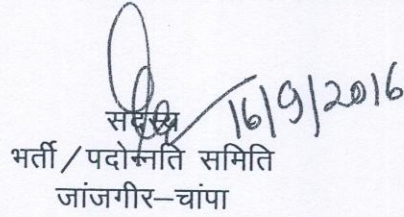 16/9/2016
सदस्य
भर्ती / पदोन्नति समिति
जांजगीर–चांपा